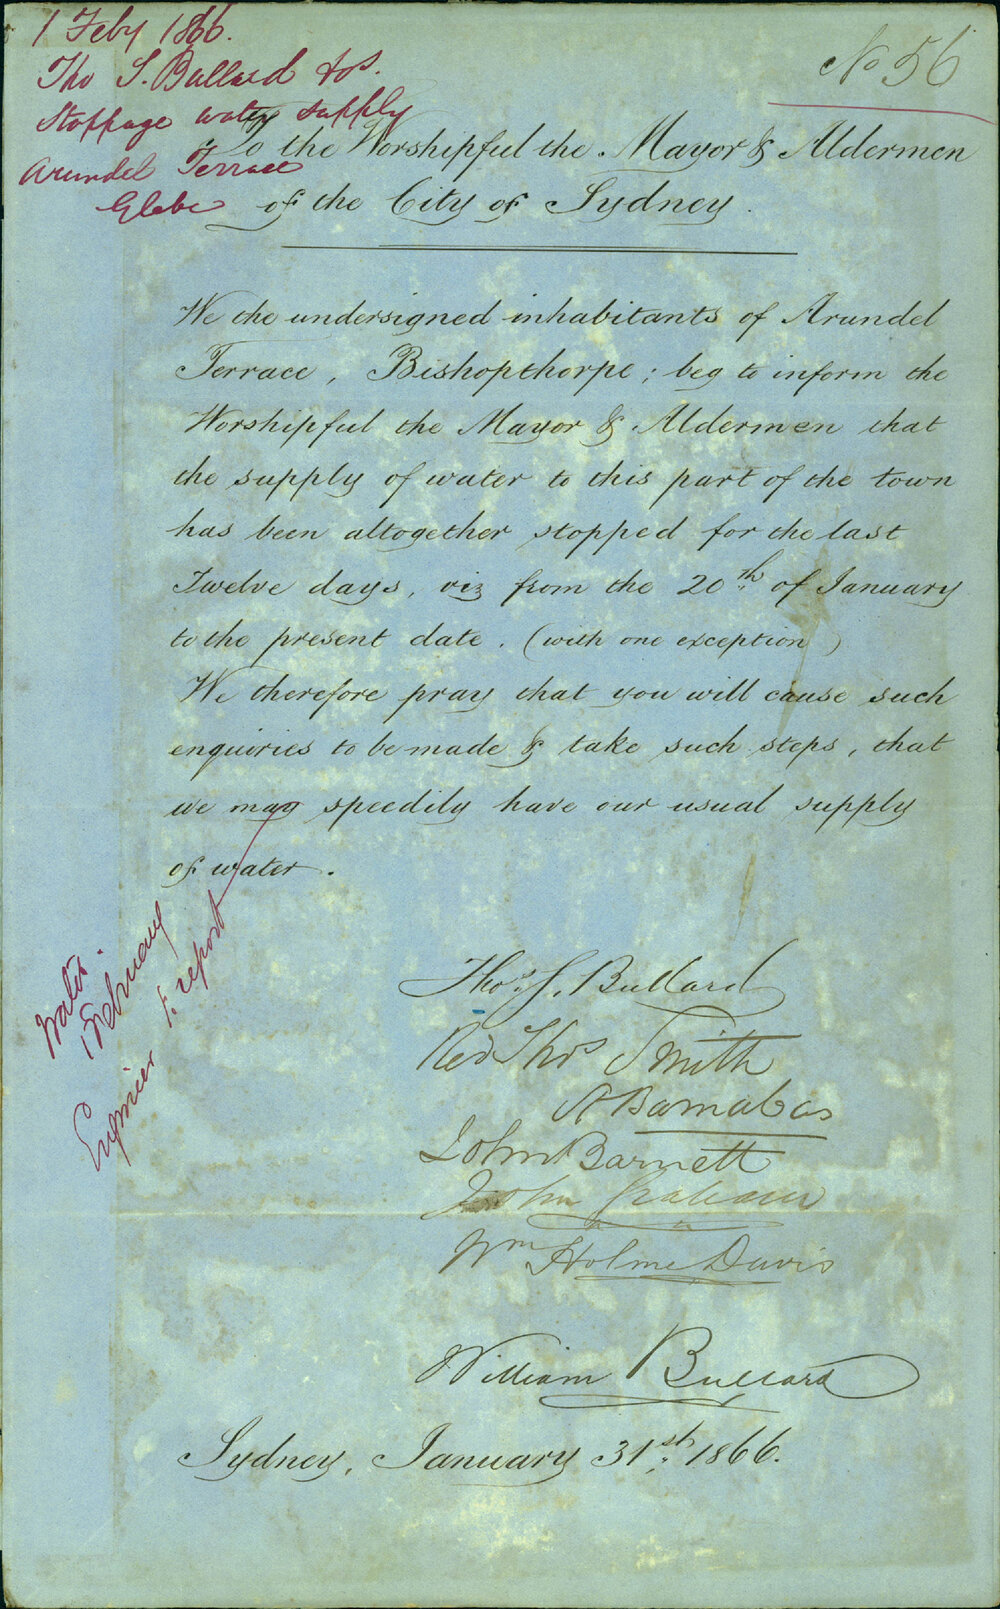 1 Feby 1866.
Tho S. Bullard & ors.
Stoppage water supply
Arundel Terrace
Glebe
No 56
To the Worshipful the Mayor & Aldermen
of the City of Sydney.
We the undersigned inhabitants of Arundel
Terrace, Bishopthorpe; beg to inform the
Worshipful the Mayor & Aldermen that
the supply of water to this part of the town
has been altogether stopped for the last
Twelve days, viz from the 20th of January
to the present date. (with one exception)
We therefore pray that you will cause such
enquiries to be made & take such steps, that
we may speedily have our usual supply
of water.
Water.
1 February
Engineer f. report
Thos. S. Bullard
Rev Thos Smith
A Barnabas
John Barnett
John Graham
Wm Holme Davis
William Bullard
Sydney, January 31st. 1866.